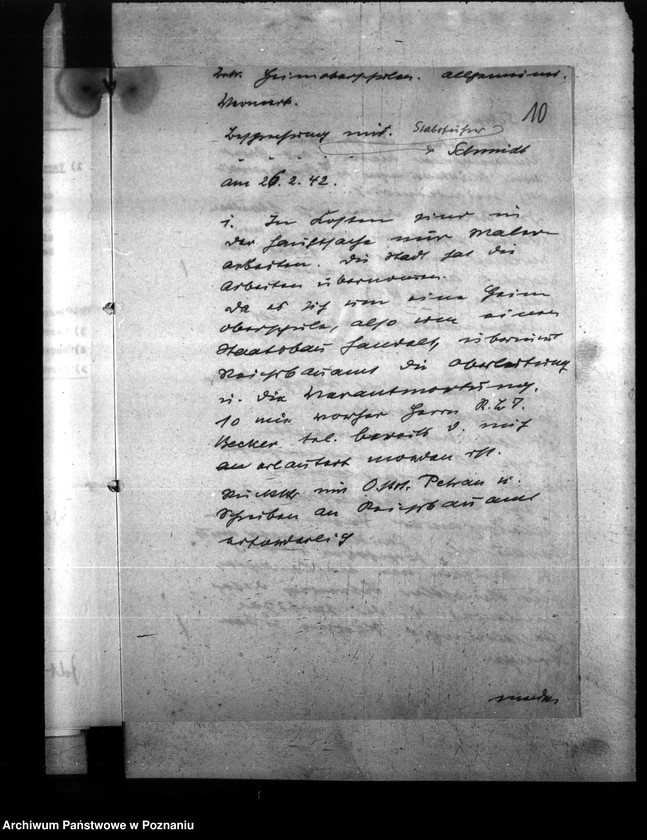 Betr. Heimoberschulen. Allgemeines.
Vermerk.
10
Besprechung mit. Stabsleiter
Schmidt
am 26.2.42.
1. In Kosten sind in
der Hauptsache nur Maler
arbeiten. Die Stadt hat die
Arbeiten übernommen.
Da es sich um eine Heim
oberschule, also um einen
Staatsbau handelt, übernimt
Reichsbauamt die Oberleitung
u. die Verantwortung.
so wie vorher Herrn R.
Becker tel. bereits d. mich
an erläutert worden ist.
Rückspr mit O. Petran u.
Schreiben an Reichsbauamt
erforderlich
Archiwum Państwowe w Poznaniu